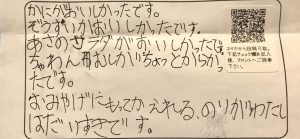 かにがおいしかったです。
ぞうすいがおいしかったです。
あさのサラダがおいしかったです
ちゃわんむしがちょっとからかっ
たです。
おみやげにもってかえれる、のりがわたし
はだいすきです。
スマホから投稿可能。
下記チェック欄を記入
後、フロントへご提参
下さい。